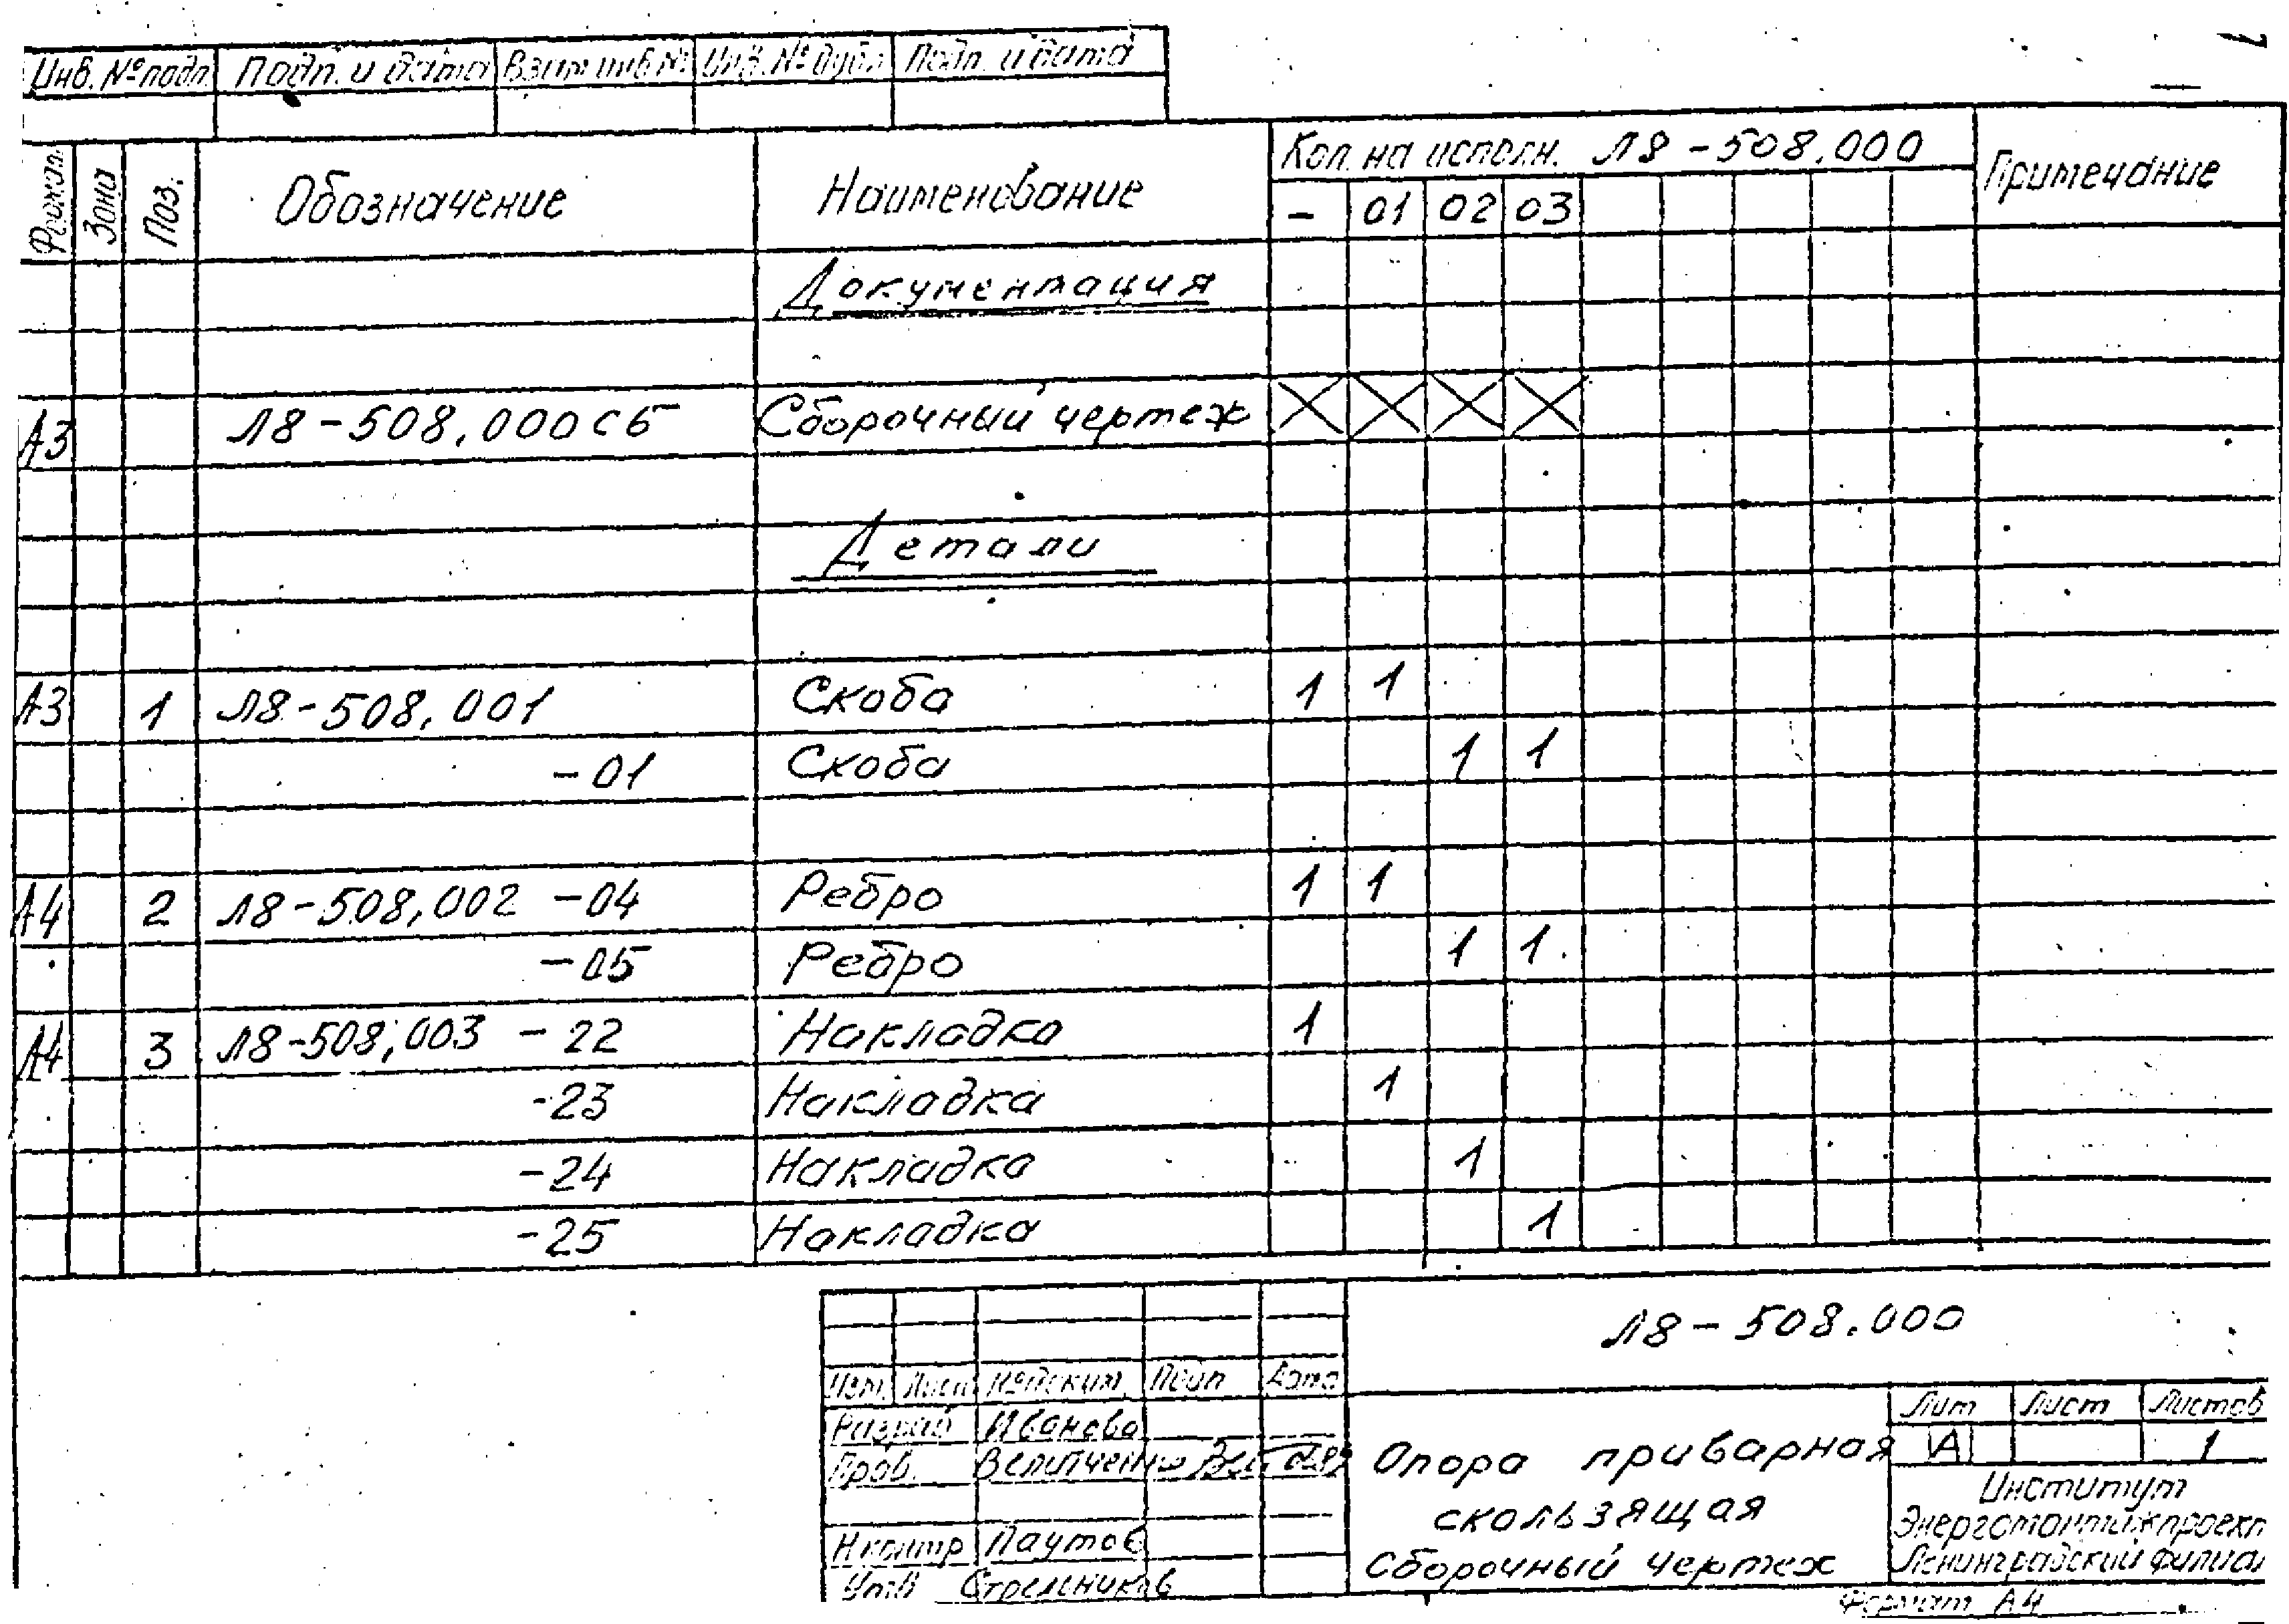 7
Инв. № подл. Подп. и дата Взам инв № Инв. № дубл Подп. и дата
Формат Зона Поз. Обозначение Наименование Кол. на исполн. Л8-508.000 Примечание
- 01 02 03
Документация
А3 Л8-508.000СБ Сборочный чертеж
Детали
А3 1 Л8-508.001 Скоба 1 1
-01 Скоба 1 1
А4 2 Л8-508.002 -04 Ребро 1 1
-05 Ребро 1 1
А4 3 Л8-508.003 -22 Накладка 1
-23 Накладка 1
-24 Накладка 1
-25 Накладка 1
Л8-508.000
Изм. Лист № докум. Подп Дата
Разраб Иванова
Пров. Величенко
Н контр Паутов
Утв Стрельников
Опора приварная
скользящая
Сборочный чертеж
Лит Лист Листов
А 1
Институт
Энергомонтажпроект
Ленинградский филиал
Формат А4